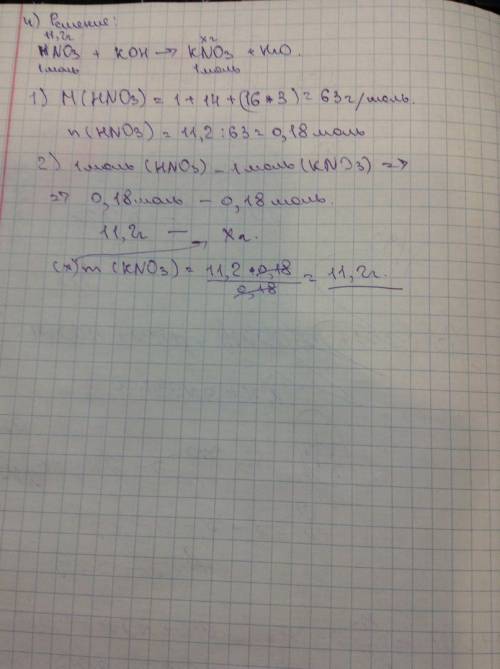 4) Решение:
11,2г хг
HNO3 + KOH → KNO3 + H2O.
1моль 1моль
1) M(HNO3) = 1 + 14 + (16*3) = 63г/моль.
n(HNO3) = 11,2 : 63 = 0,18моль
2) 1моль (HNO3) – 1моль (KNO3) =>
=> 0,18моль – 0,18моль.
11,2г – хг.
(х) m (KNO3) = 11,2 * 0,18 / 0,18 = 11,2г.